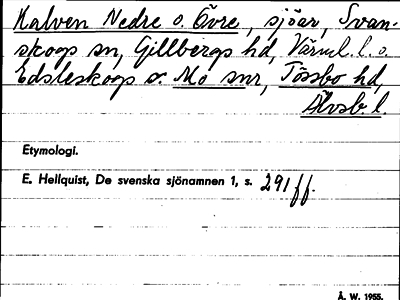 Kalven Nedre o. Övre, sjöar, Svan-
skogs sn, Gillbergs hd, Värml. l. o.
Edsleskogs o. Mo snr, Tössbo hd,
Älvsb. l.
Etymologi.
E. Hellquist, De svenska sjönamnen 1, s. 291 ff.
Å. W. 1955.